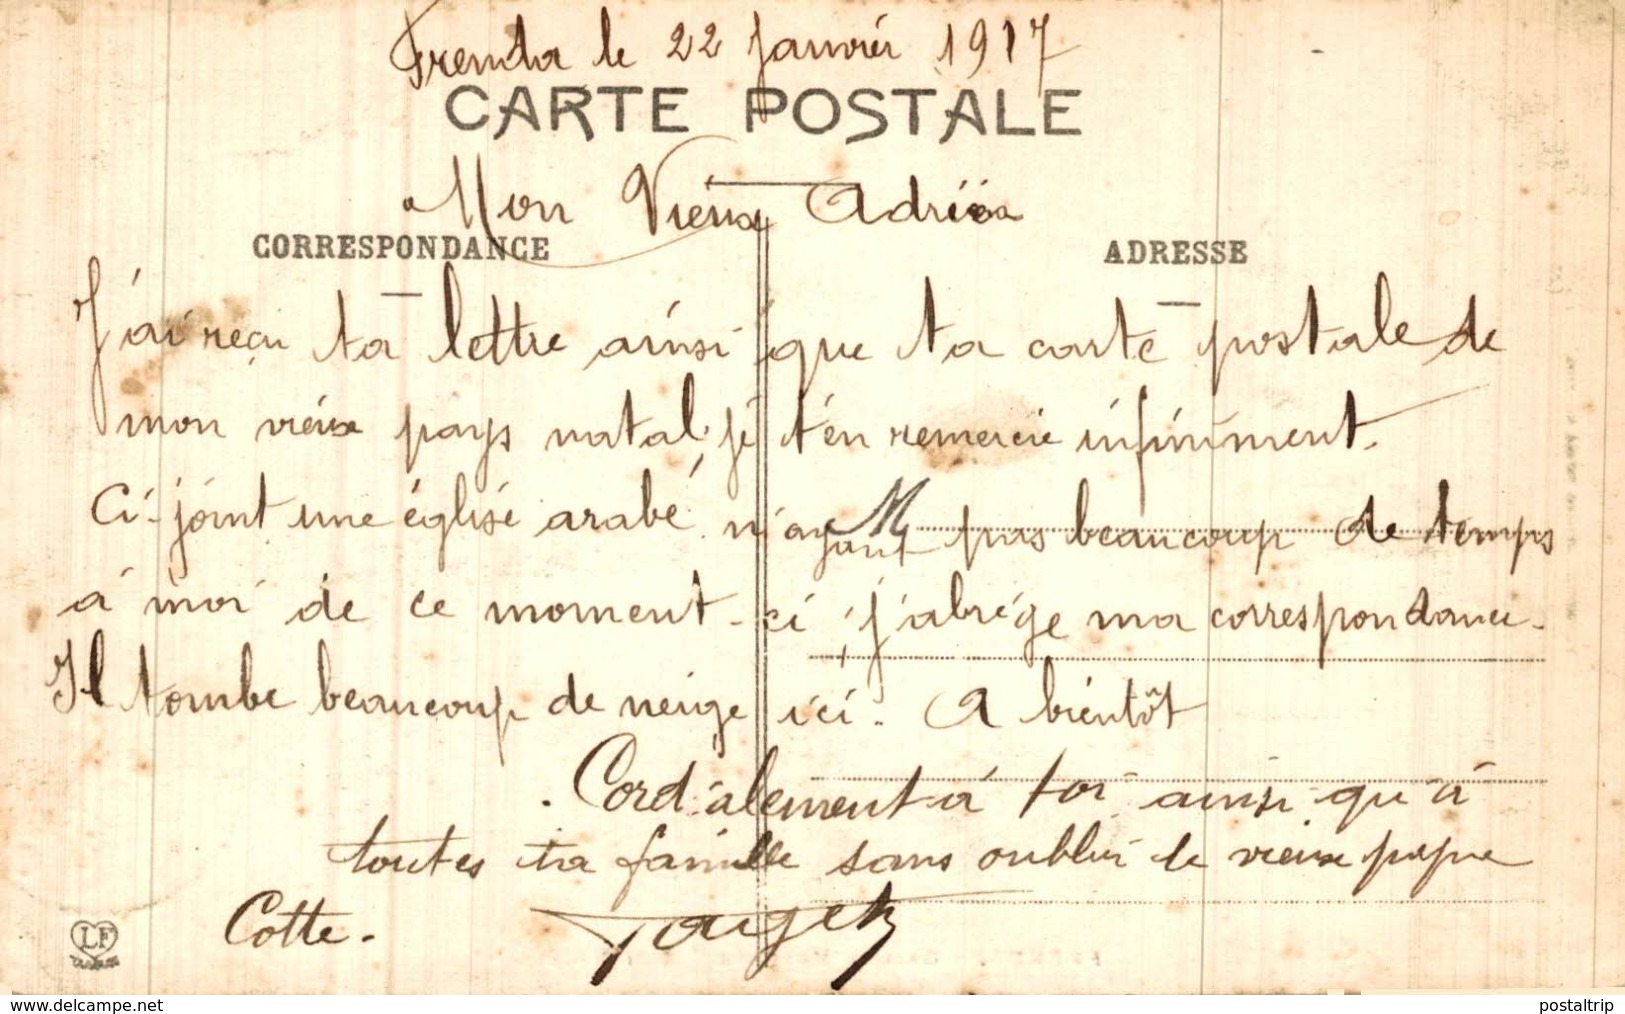 Frenda le 22 Janvier 1917
CARTE POSTALE
Mon Vieux
CORRESPONDANCE ADRESSE
J'ai reçu ta lettre ainsi que ta carte postale de
mon vieux pays natal, je t'en remercie infiniment.
Ci-joint une église arabe n'ayant pas beaucoup de temps
M
à moi de ce moment-ci, j'abrège ma correspondance.
Il tombe beaucoup de neige ici. A bientôt
Cordialement à toi ainsi qu'à
toutes ta famille sans oublier le vieux
Cotte.
LF
www.delcampe.net postaltrip